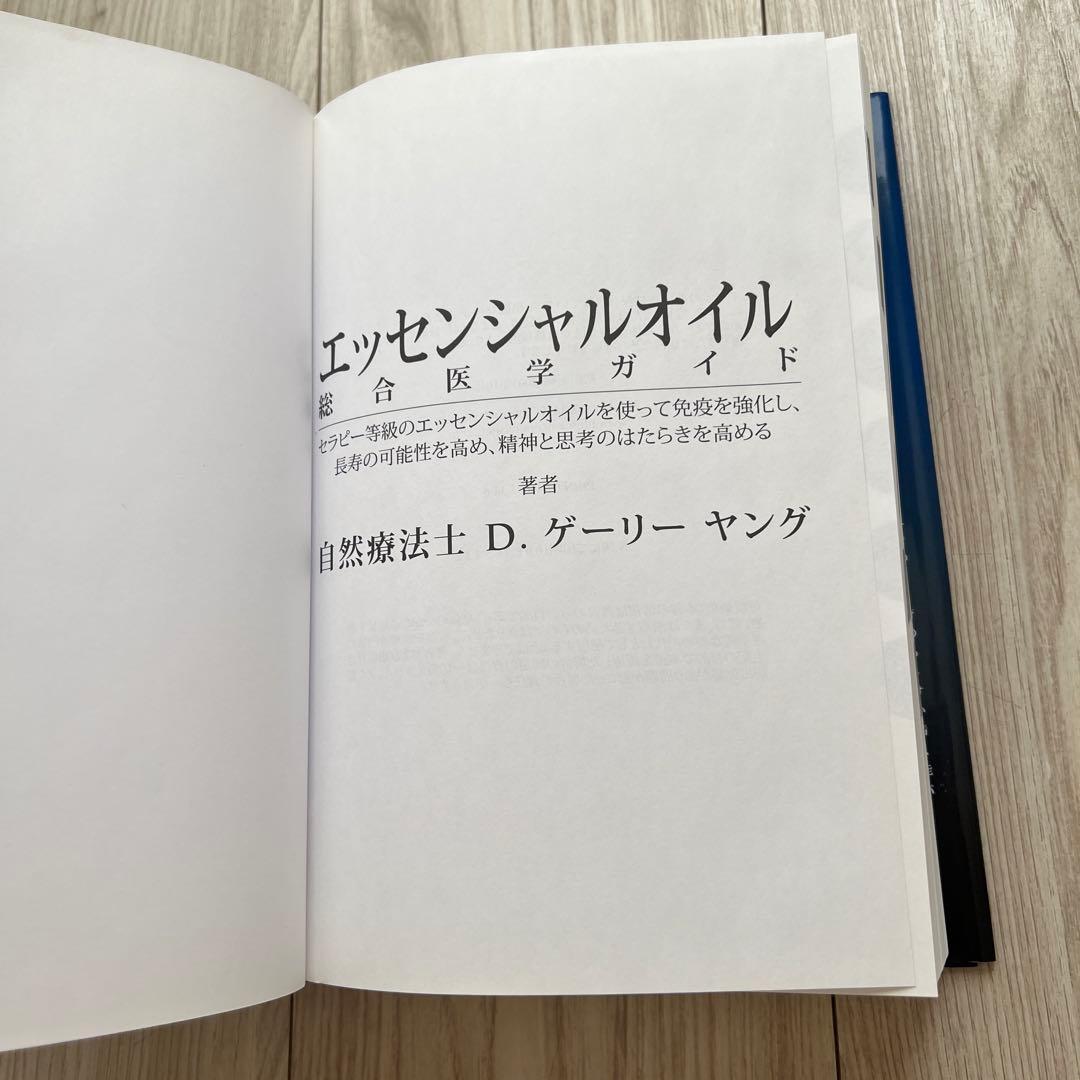 エッセンシャルオイル
総合医学ガイド
セラピー等級のエッセンシャルオイルを使って免疫を強化し、
長寿の可能性を高め、精神と思考のはたらきを高める
著者
自然療法士 D. ゲーリー ヤング